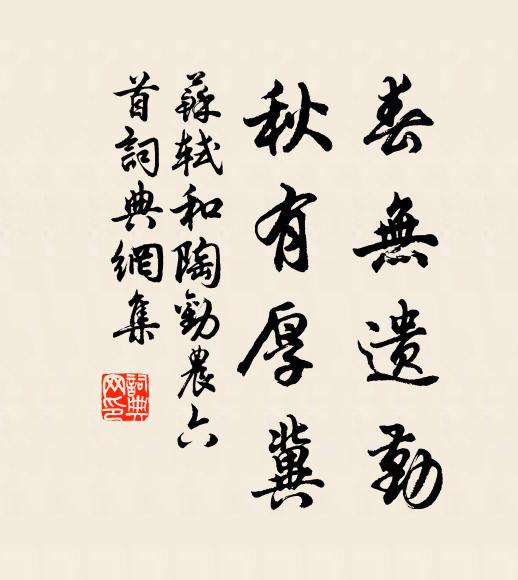 春無遺勤
秋有厚冀
蘇軾和陶勸農六
首詞典網集
詞典
网印